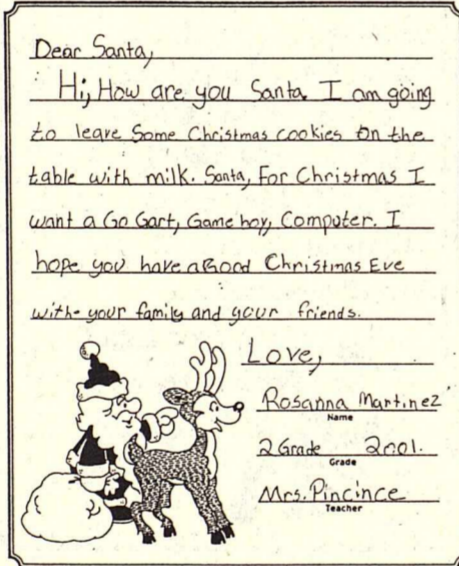 Dear Santa,
Hi, How are you Santa. I am going
to leave Some Christmas cookies on the
table with milk. Santa, For Christmas I
want a Go Gart, Game boy, Computer. I
hope you have a Good Christmas Eve
with your family and your friends.
Love,
Rosanna Martinez
Name
2 Grade 2001.
Grade
Mrs. Pincince
Teacher